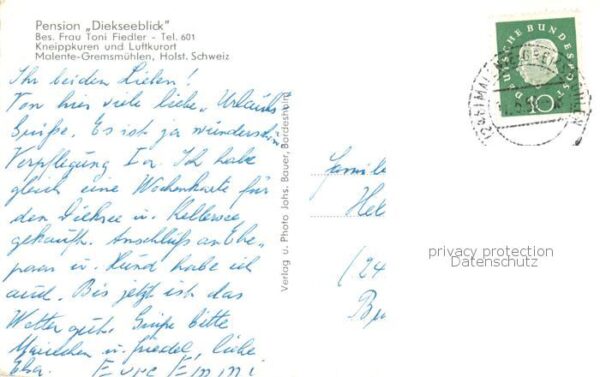 Pension „Diekseeblick"
Bes. Frau Toni Fiedler - Tel. 601
Kneippkuren und Luftkurort
Malente-Gremsmühlen, Holst. Schweiz
Ihr beiden Lieben!
Von hier viele liebe „Urlaubs
Grüße. Es ist ja wunderschön
Verpflegung Ia. Ich habe
gleich eine Wochenkarte für
den Dieksee u. Kellersee
gekauft. Anschluß an Ehe-
paar u. Hund habe ich
auch. Bis jetzt ist das
Wetter gut. Grüße bitte
u. liebe
Eure Emmi
Verlag u. Photo Johs. Bauer, Bordesholm
Familie
Hel
(24
DEUTSCHE BUNDESPOST
10
privacy protection
Datenschutz